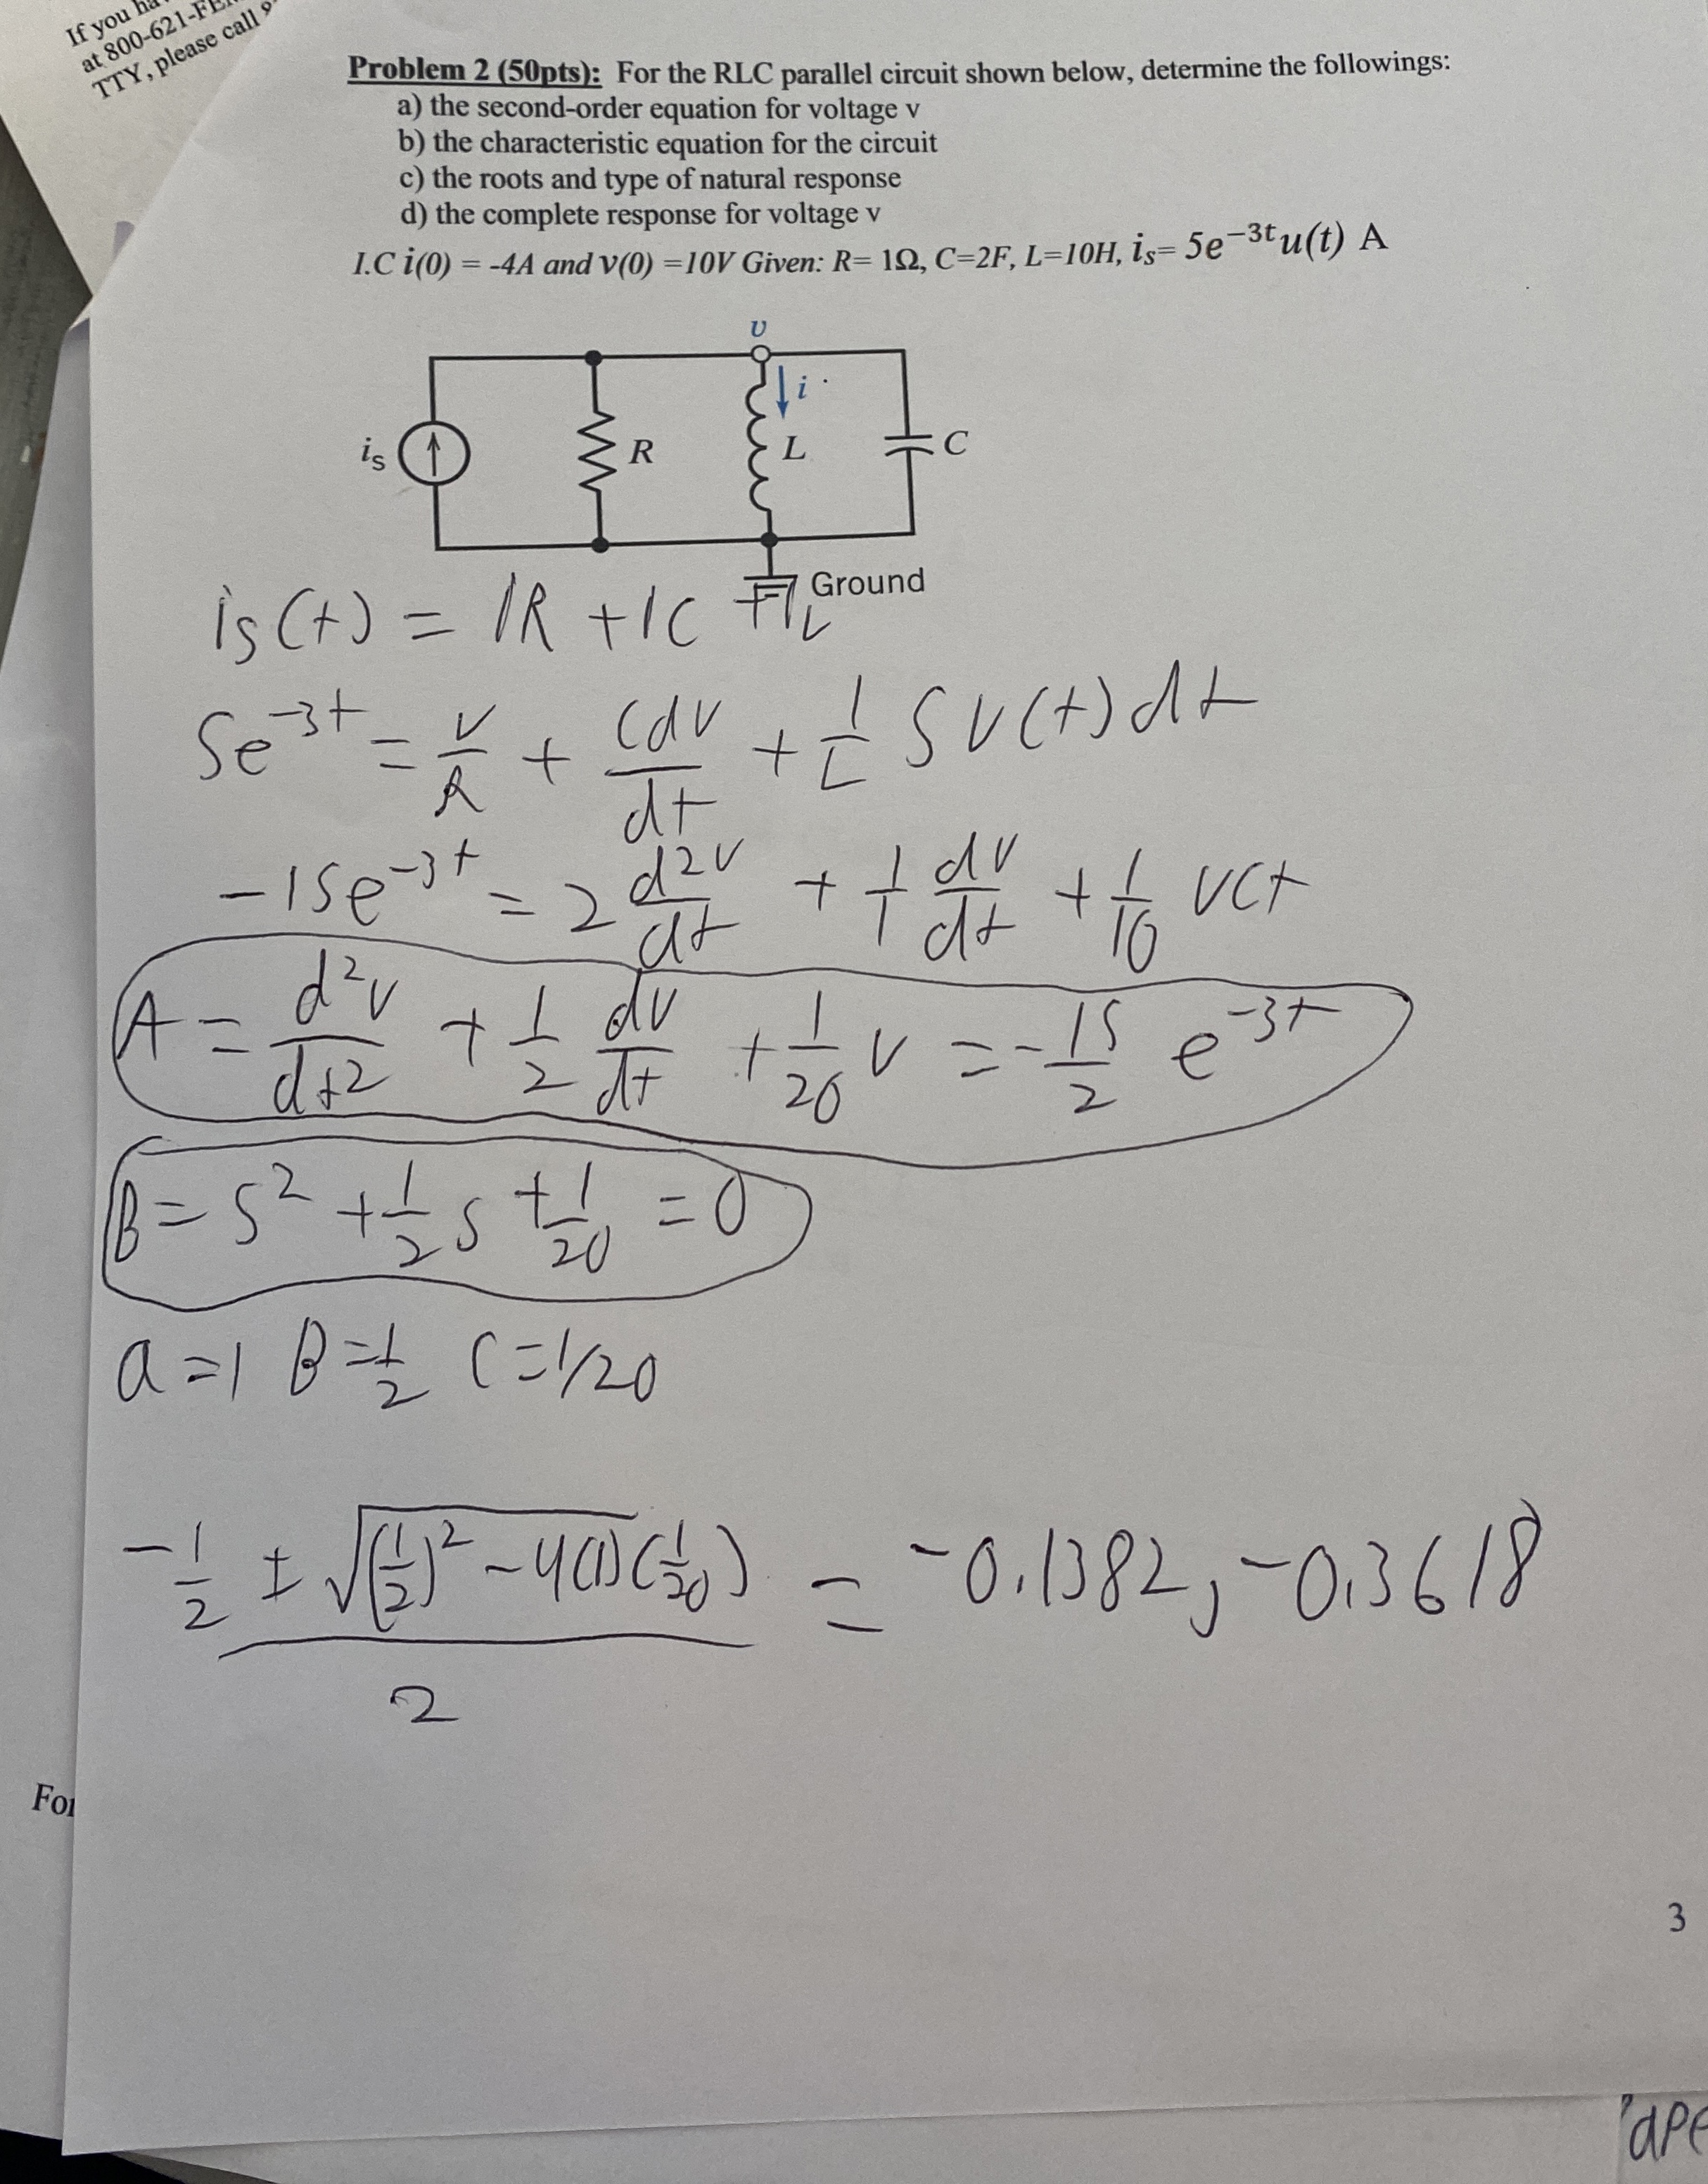 If you ha
at 800-621-FE
TTY, please call 9
Problem 2 (50pts): For the RLC parallel circuit shown below, determine the followings:
a) the second-order equation for voltage v
b) the characteristic equation for the circuit
c) the roots and type of natural response
d) the complete response for voltage v
I.C i(0) = -4A and v(0) =10V Given: R= 1Ω, C=2F, L=10H, is= 5e^-3t u(t) A
v
i
is
R
L
C
Ground
is(t) = IR + IC + IL
5e^-3t = v/R + Cdv/dt + 1/L ∫v(t)dt
-15e^-3t = 2 d2v/dt + 1/1 dv/dt + 1/10 v(t
A = d²v/dt2 + 1/2 dv/dt + 1/20 v = -15/2 e^-3t
B = s² + 1/2 s + 1/20 = 0
a = 1 B = 1/2 C = 1/20
-1/2 ± √(1/2)² - 4(1)(1/20) / 2 = -0.1382, -0.3618
For
3